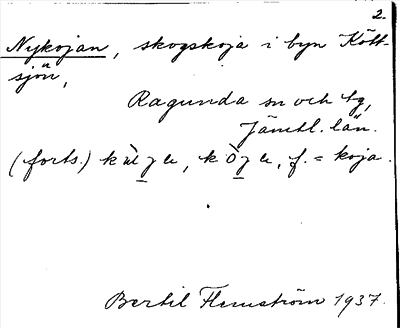 2.
Nykojan, skogskoja i byn Kött-
sjön,
Ragunda sn och tg,
Jämtl. län.
(forts.) f. = koja.
Bertil Flemström 1937.